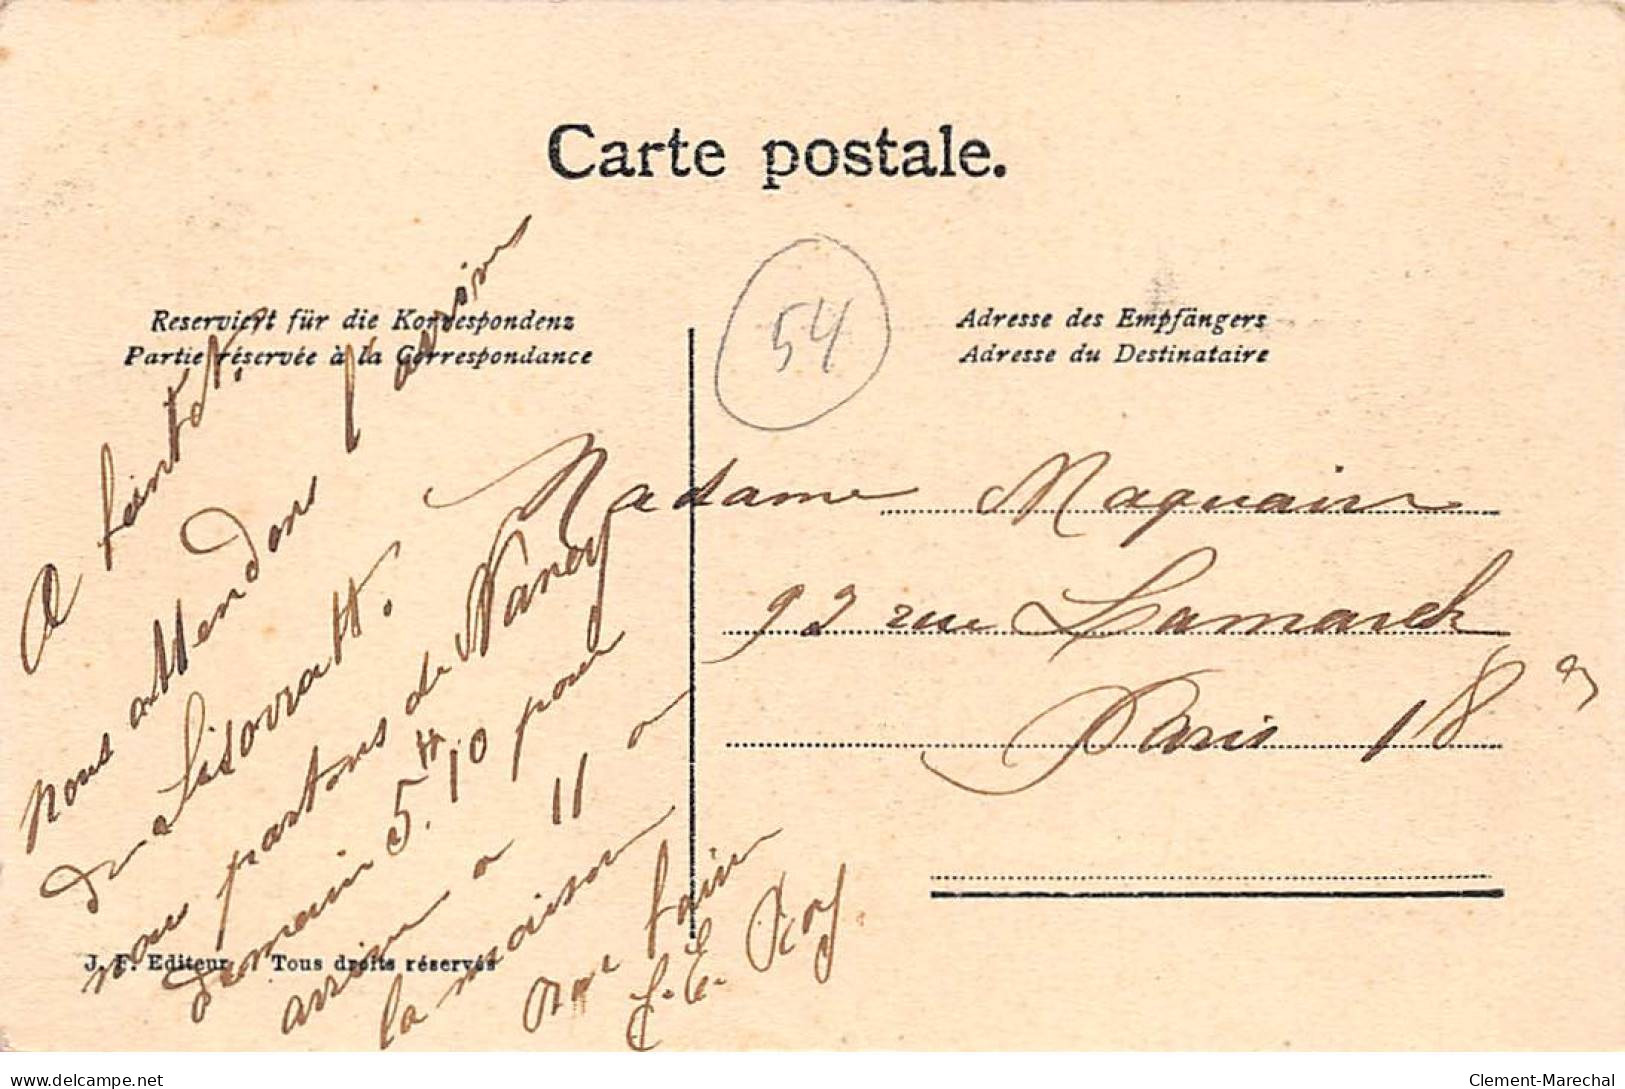 Carte postale.
54
Reserviert für die Korrespondenz
Partie réservée à la Correspondance
Adresse des Empfängers
Adresse du Destinataire
Madame Maquaire
93 rue Lamarck
Paris 18
A
nous attendons l'
du
nous partons de Nancy
demain 5H.10 pour
arriver a 11 a
la maison
Roy
J. F. Editeur Tous droits réservés
delcampe.net
Clement-Marechal